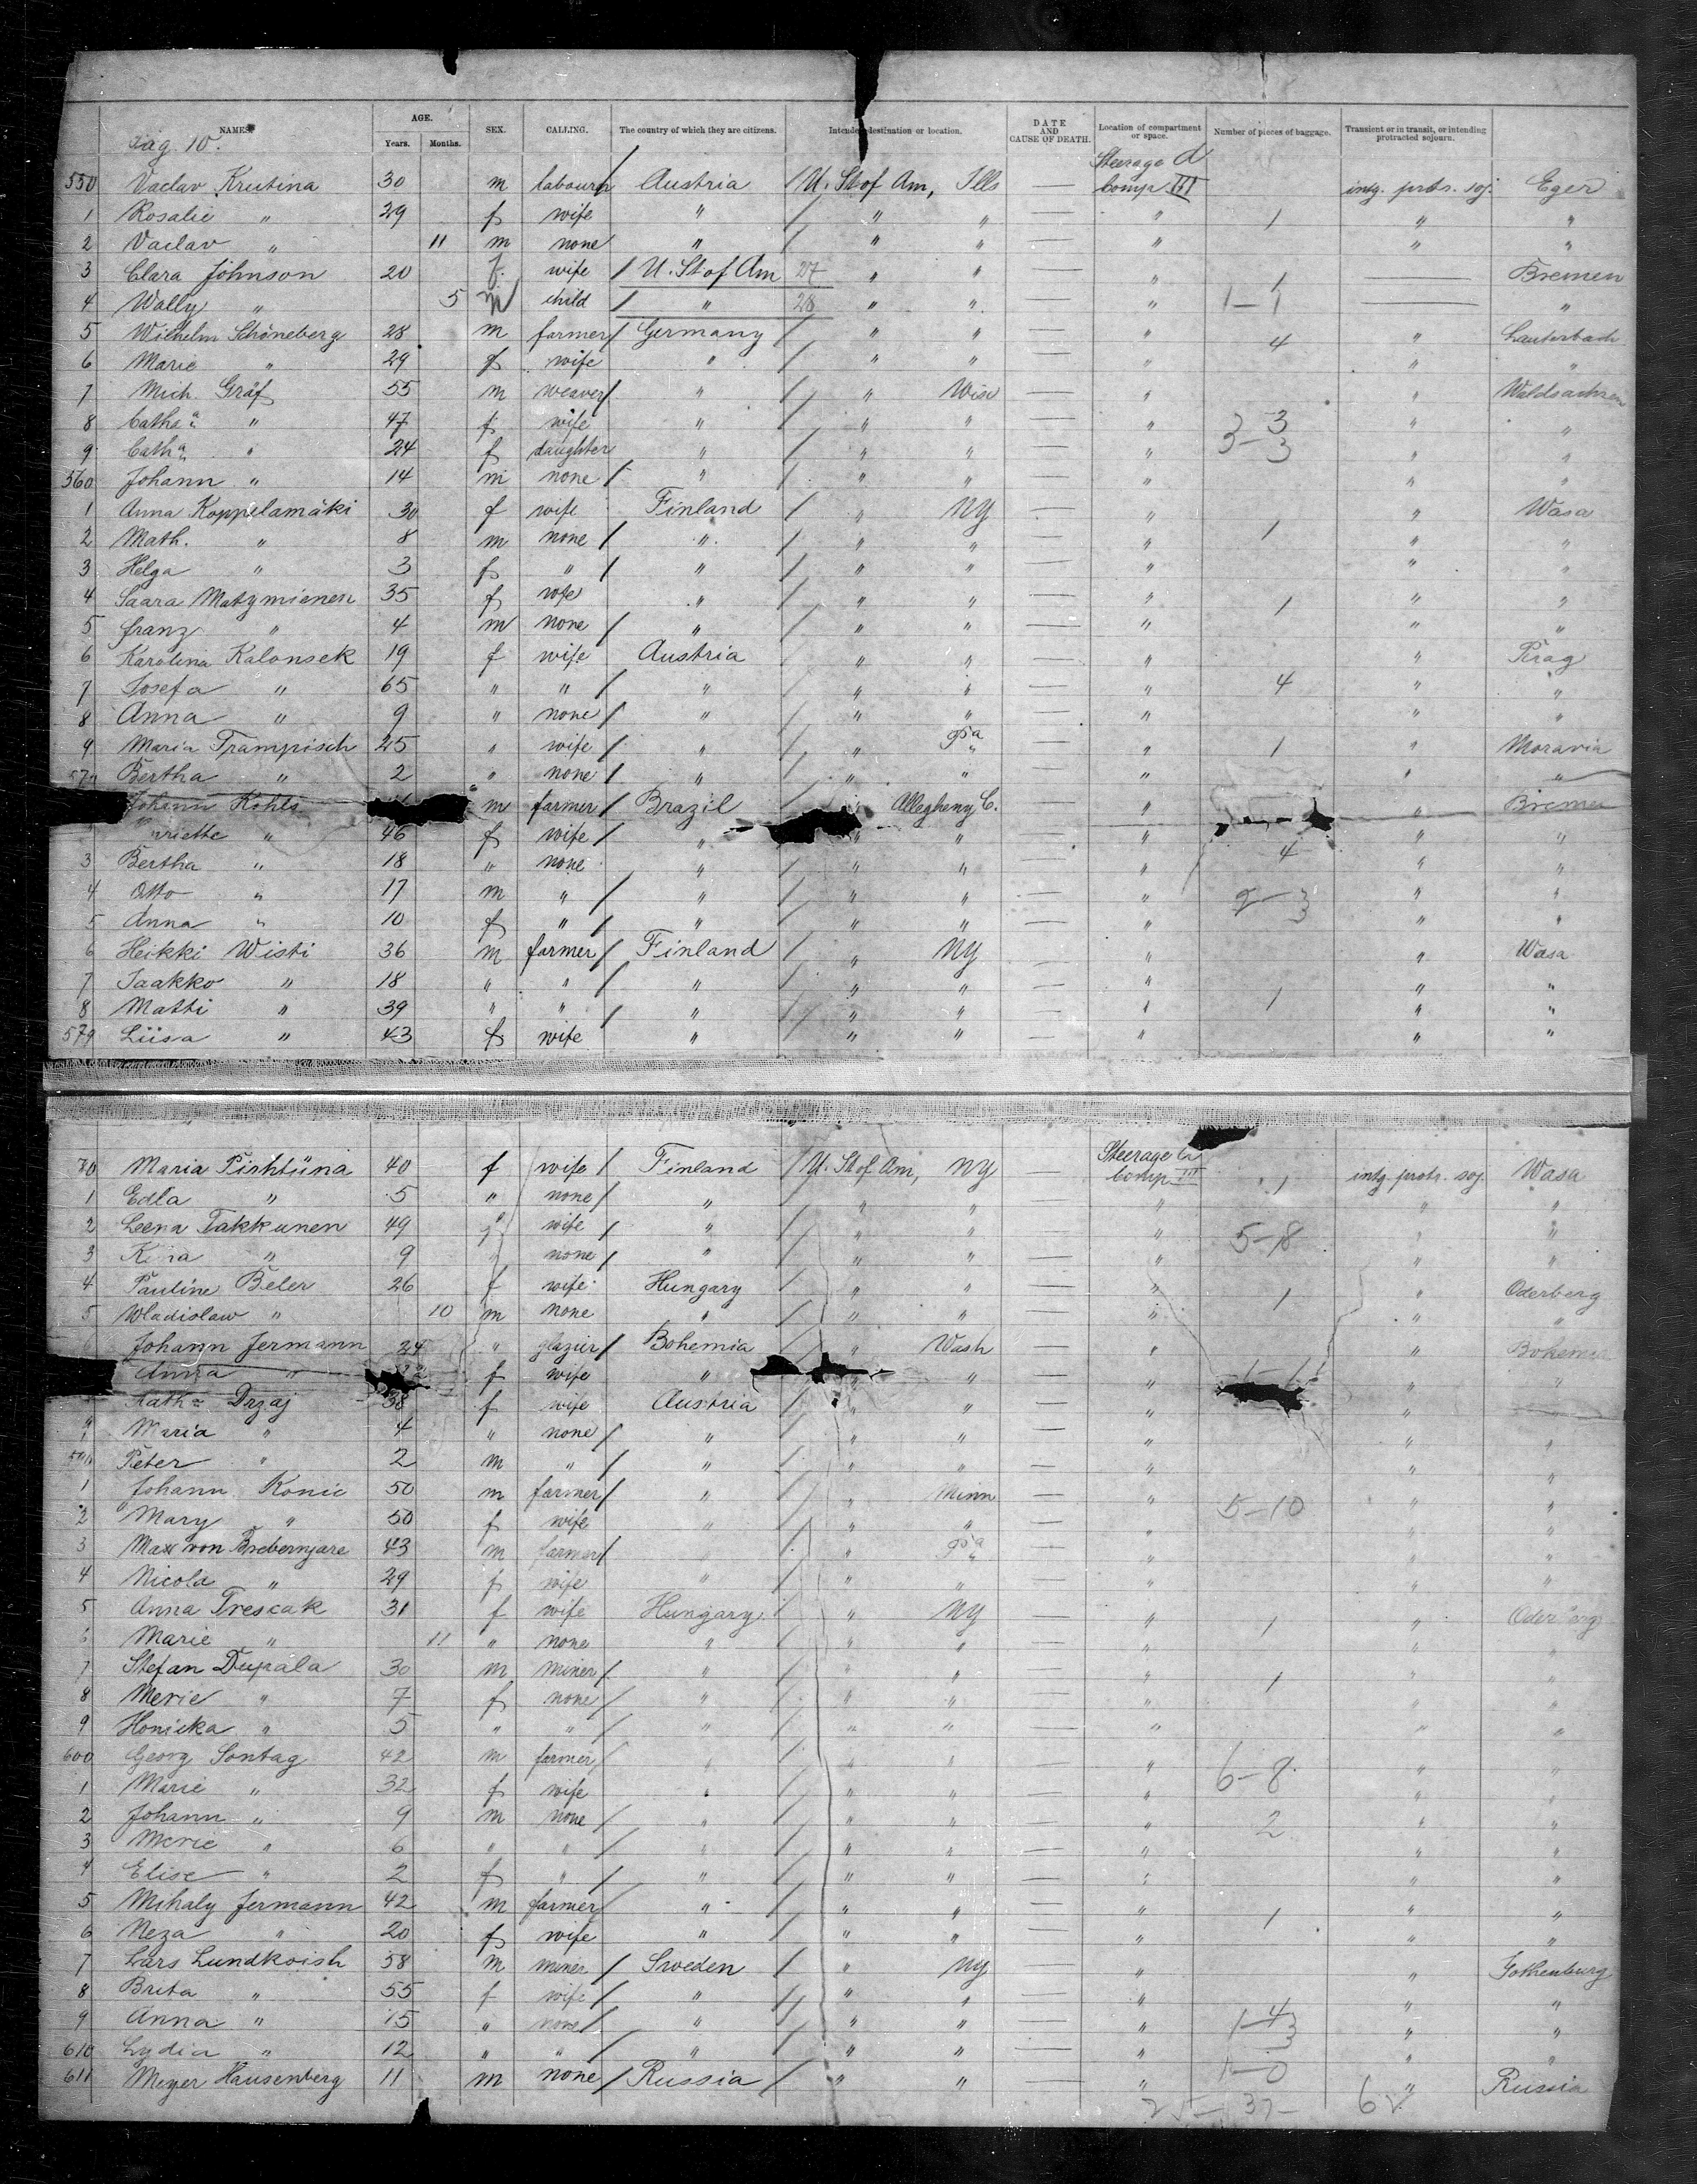 NAMES. AGE. Years. Months. SEX. CALLING. The country of which they are citizens. Intended destination or location. DATE AND CAUSE OF DEATH. Location of compartment or space. Number of pieces of baggage. Transient or in transit, or intending protracted sojourn.
pag. 10.
Steerage d
550 Vaclav Krutina 30 m labourer Austria U. St of Am, Ills — Comp III intg. protr. soj. Eger
1 Rosalie " 29 f wife " " " — " 1 " "
2 Vaclav " 11 m none " " " — " " "
3 Clara Johnson 20 f. wife U. St of Am 27 " " — " 1 — Bremen
4 Wally " 5 child " 28 " " — " 1-1 — "
5 Wilhelm Schöneberg 28 m farmer Germany " " — " 4 " Lauterbach
6 Marie " 29 f wife " " " — " " "
7 Mich. Gräf 55 m weaver " " Wisc — " " Waldsachsen
8 Cathª " 47 f wife " " " — " 3 " "
9 Cathª " 24 f daughter " " " — " 3-3 " "
560 Johann " 14 m none " " " — " " "
1 Anna Koppelamäki 30 f wife Finland " NY — " " Wasa
2 Math. " 8 m none " " " — " 1 " "
3 Helga " 3 f " " " " — " " "
4 Saara Matymienen 35 f wife " " " — " 1 " "
5 franz " 4 m none " " " — " "
6 Karolina Kalonsek 19 f wife Austria " " — " " Prag
7 Josefa " 65 " " " " " — " 4 " "
8 Anna " 9 " none " " " — " " "
9 Maria Trampisch 25 " wife " " Pa " — " 1 " Moravia
570 Bertha " 2 " none " " " — " " "
Johann Kohls m farmer Brazil " Allegheny C. — " " Bremen
" 46 f wife " " " — " " "
3 Bertha " 18 " none " " " — " 4 " "
4 Otto " 17 m " " " " — " " "
5 Anna " 10 f " " " " — " 3 " "
6 Heikki Wisti 36 m farmer Finland " NY — " " Wasa
7 Jaakko " 18 " " " " " — " " "
8 Matti " 39 " " " " " — " 1 " "
579 Liisa " 43 f wife " " " — " " "
Steerage
70 Maria Pirhtüna 40 f wife Finland U. St of Am, NY — Comp III 1 intg. protr. soj. Wasa
1 Edla " 5 " none " " " — " " "
2 Leena Takkunen 49 wife " " " — " 5-8 " "
3 " 9 none " " " — " " "
4 Pauline Beler 26 f wife Hungary " " — " 1 " Oderberg
5 Wladislaw " 10 m none " " " — " " "
Johann Jermann 24 " glazier Bohemia " Wash — " " Bohemia
Anna " f wife " " — " 1-1 " "
Kathª Drzaj 38 f wife Austria " " — " "
Maria " 4 " none " " " — " " "
Peter " 2 m " " " " — " " "
1 Johann Konic 50 m farmer " " Minn — " " "
2 Mary " 50 f wife " " " — " 5-10 " "
3 Max von 43 m farmer " " Pa " — " " "
4 Nicola " 29 f wife " " " — " " "
5 Anna Trescak 31 f wife Hungary " NY — " 1 " Oderberg
6 Marie " 11 " none " " " — " " "
7 Stefan Dupala 30 m miner " " " — " 1 " "
8 Merie " 7 f none " " " — " " "
9 Honicka " 5 " " " " " — " " "
600 Georg Sontag 42 m farmer " " " — " " "
1 Marie " 32 f wife " " " — " 6-8. " "
2 Johann " 9 m none " " " — " 2 " "
3 Merie " 6 " " " " " — " " "
4 Elise " 2 f " " " " — " " "
5 Mihaly Jermann 42 m farmer " " " — " 1 " "
6 Neza " 20 f wife " " " — " "
7 Lars Lundkoish 58 m miner Sweden " NY — " " Gothenburg
8 Brita " 55 f wife " " " — " " "
9 Anna " 15 " none " " " — " 1-4 " "
610 Lydia " 12 " " " " " — " 3 " "
611 Meyer Hausenberg 11 m none Russia " " — " 1-0 " Russia
25-37- 62